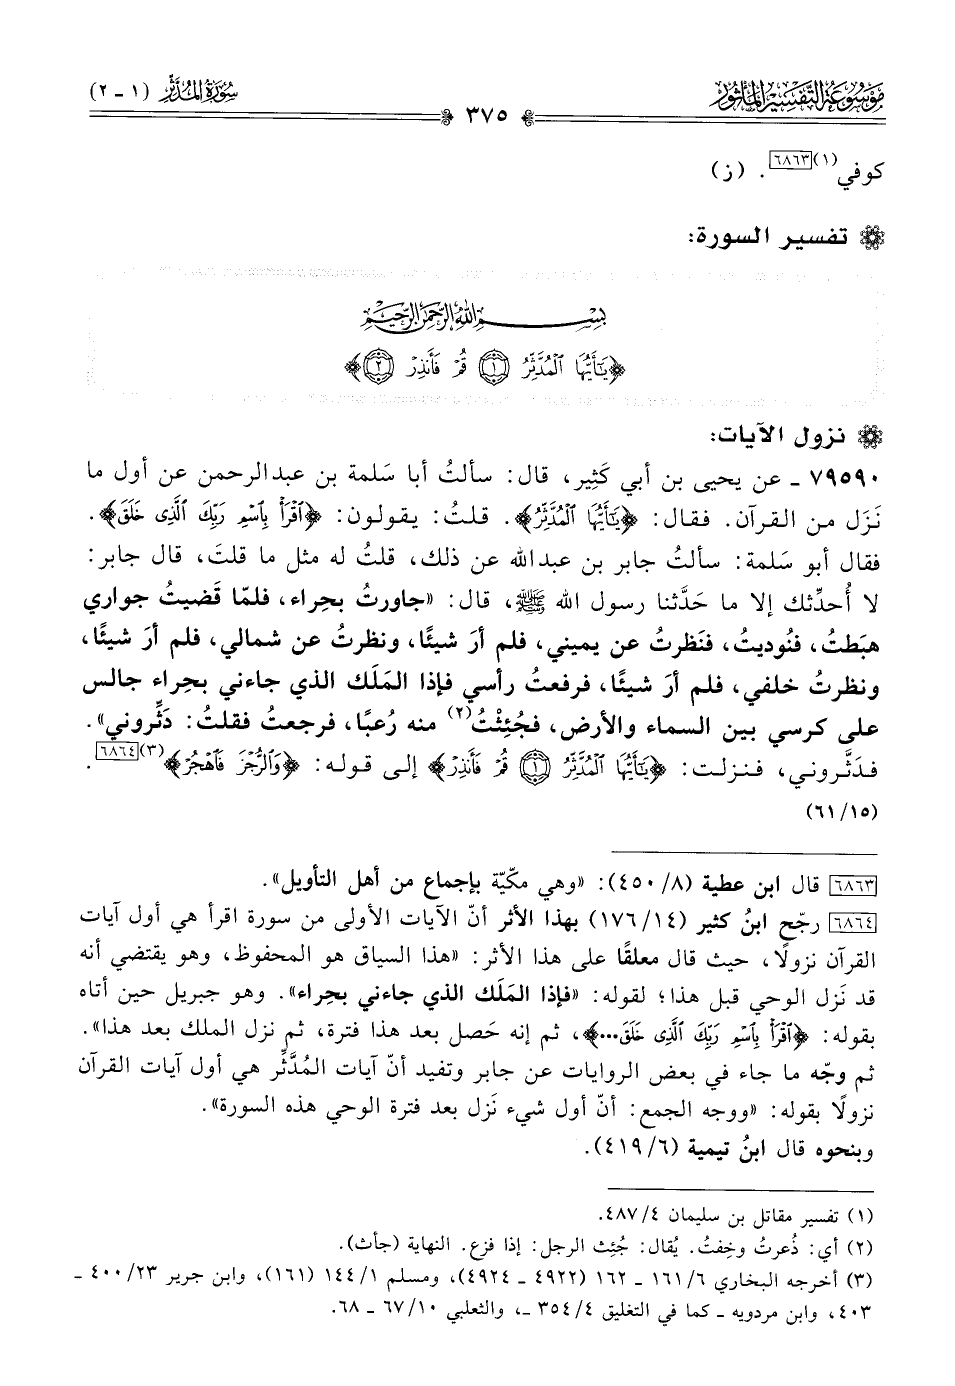 موسوعة التفسير المأثور
٣٧٥
سورة المدثر (١ - ٢)
كوفي(١)[٦٨٦٣]. (ز)
تفسير السورة:
بسم الله الرحمن الرحيم
﴿يَٰٓأَيُّهَا ٱلْمُدَّثِّرُ ١ قُمْ فَأَنذِرْ ٢﴾
نزول الآيات:
٧٩٥٩٠ ـ عن يحيى بن أبي كَثِير، قال: سألتُ أبا سَلمة بن عبدالرحمن عن أول ما
نَزَل من القرآن. فقال: ﴿يَٰٓأَيُّهَا ٱلْمُدَّثِّرُ﴾. قلتُ: يقولون: ﴿ٱقْرَأْ بِٱسْمِ رَبِّكَ ٱلَّذِى خَلَقَ﴾.
فقال أبو سَلمة: سألتُ جابر بن عبدالله عن ذلك، قلتُ له مثل ما قلتَ، قال جابر:
لا أُحدِّثك إلا ما حَدَّثنا رسول الله ﷺ، قال: «جاورتُ بحِراء، فلمّا قَضيتُ جواري
هبَطتُ، فنُوديتُ، فنَظرتُ عن يميني، فلم أرَ شيئًا، ونظرتُ عن شمالي، فلم أرَ شيئًا،
ونظرتُ خلفي، فلم أرَ شيئًا، فرفعتُ رأسي فإذا المَلَك الذي جاءني بحِراء جالس
على كرسي بين السماء والأرض، فجُئِثْتُ(٢) منه رُعبًا، فرجعتُ فقلتُ: دَثِّروني».
فدَثَّروني، فنزلت: ﴿يَٰٓأَيُّهَا ٱلْمُدَّثِّرُ ١ قُمْ فَأَنذِرْ﴾ إلى قوله: ﴿وَٱلرُّجْزَ فَٱهْجُرْ﴾(٣)[٦٨٦٤].
(٦١/١٥)
[٦٨٦٣] قال ابن عطية (٤٥٠/٨): «وهي مكيّة بإجماع من أهل التأويل».
[٦٨٦٤] رجّح ابنُ كثير (١٧٦/١٤) بهذا الأثر أنّ الآيات الأولى من سورة اقرأ هي أول آيات
القرآن نزولًا، حيث قال معلقًا على هذا الأثر: «هذا السياق هو المحفوظ، وهو يقتضي أنه
قد نَزل الوحي قبل هذا؛ لقوله: «فإذا المَلَك الذي جاءني بحِراء». وهو جبريل حين أتاه
بقوله: ﴿ٱقْرَأْ بِٱسْمِ رَبِّكَ ٱلَّذِى خَلَقَ...﴾، ثم إنه حَصل بعد هذا فترة، ثم نزل الملك بعد هذا».
ثم وجّه ما جاء في بعض الروايات عن جابر وتفيد أنّ آيات المُدَّثِّر هي أول آيات القرآن
نزولًا بقوله: «ووجه الجمع: أنّ أول شيء نَزل بعد فترة الوحي هذه السورة».
وبنحوه قال ابنُ تيمية (٤١٩/٦).
(١) تفسير مقاتل بن سليمان ٤٨٧/٤.
(٢) أي: ذُعرتُ وخِفتُ. يُقال: جُئِث الرجل: إذا فزع. النهاية (جأث).
(٣) أخرجه البخاري ١٦١/٦ ـ ١٦٢ (٤٩٢٢ ـ ٤٩٢٤)، ومسلم ١٤٤/١ (١٦١)، وابن جرير ٤٠٠/٢٣ ـ
٤٠٣، وابن مردويه ـ كما في التغليق ٣٥٤/٤ ـ، والثعلبي ٦٧/١٠ ـ ٦٨.